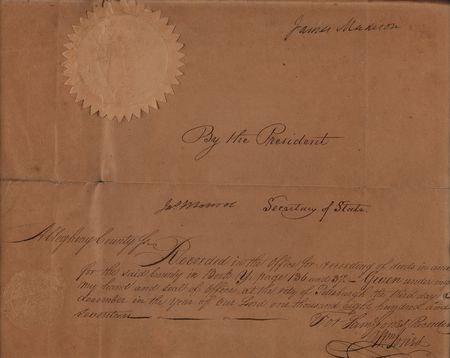 James Madison
By the President
Jas Monroe Secretary of State.
Allegheny County ss.
Recorded in the Office for recording of deeds in and
for the said County in Book Y page 136 and 37 – Given under
my hand and seal of office at the city of Pittsburgh the third day
December in the year of Our Lord one thousand eight hundred and
seventeen
For Recorder